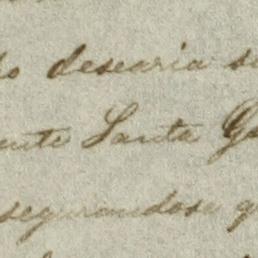 do desearia se
ente Santa Ga
segurandose q